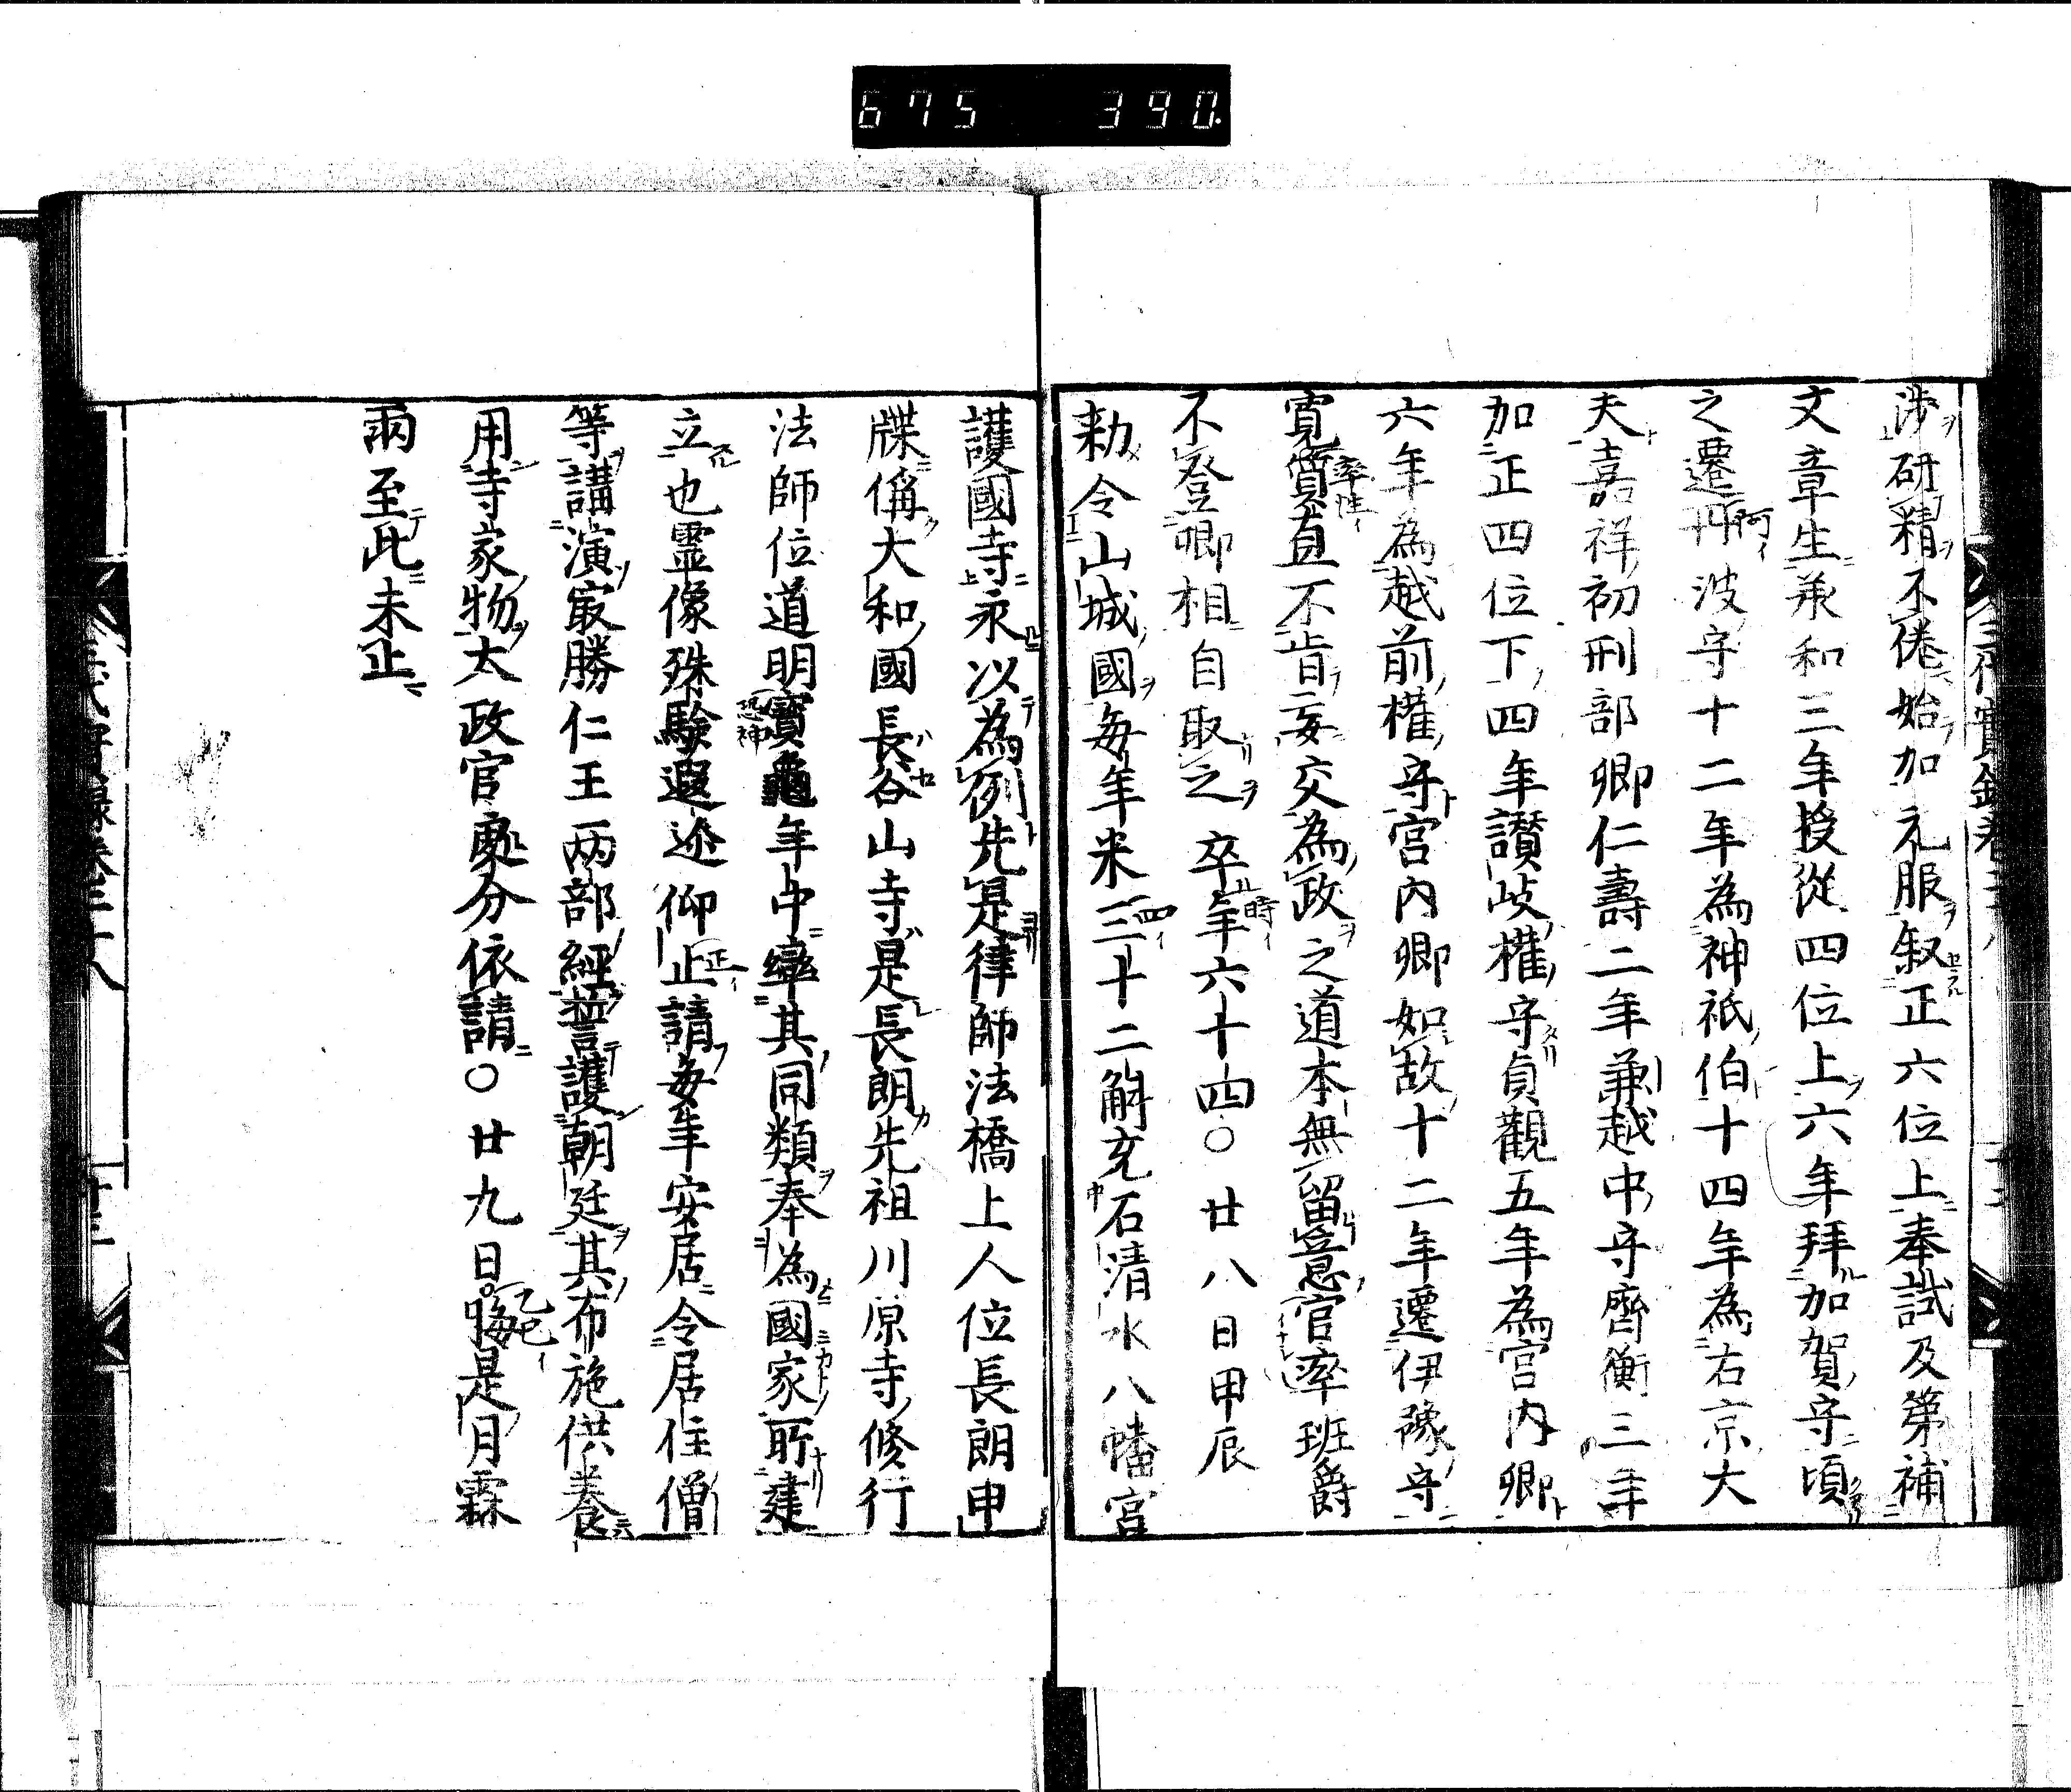 675 390
涉研精不倦始加礼服叙正六位上奉試及第補
文章生承和三年授從四位上六年拜加賀守頃
之遷丹波守十二年為神祇伯十四年為右京大
夫嘉祥初刑部卿仁壽二年兼越中守齊衡三年
加正四位下四年讃岐權守貞觀五年為宮内卿
六年為越前權守宮内卿如故十二年遷伊豫守
寛質直不肯妄交為政之道本無留意官率班爵
不登卿相自取之卒年六十四○廿八日甲辰
勅令山城國每年米三十二斛充石清水八幡宮
護國寺永以為例先是律師法橋上人位長朗申
牒偁大和國長谷山寺是長朗先祖川原寺修行
法師位道明寶龜年中率其同類奉為國家所建
立也霊像殊驗遐迩仰止請每年安居令居住僧
等講演㝡勝仁王两部經誓護朝廷其布施供養
用寺家物太政官處分依請○廿九日晦是月霖
雨至此未止
三代實録卷三十八